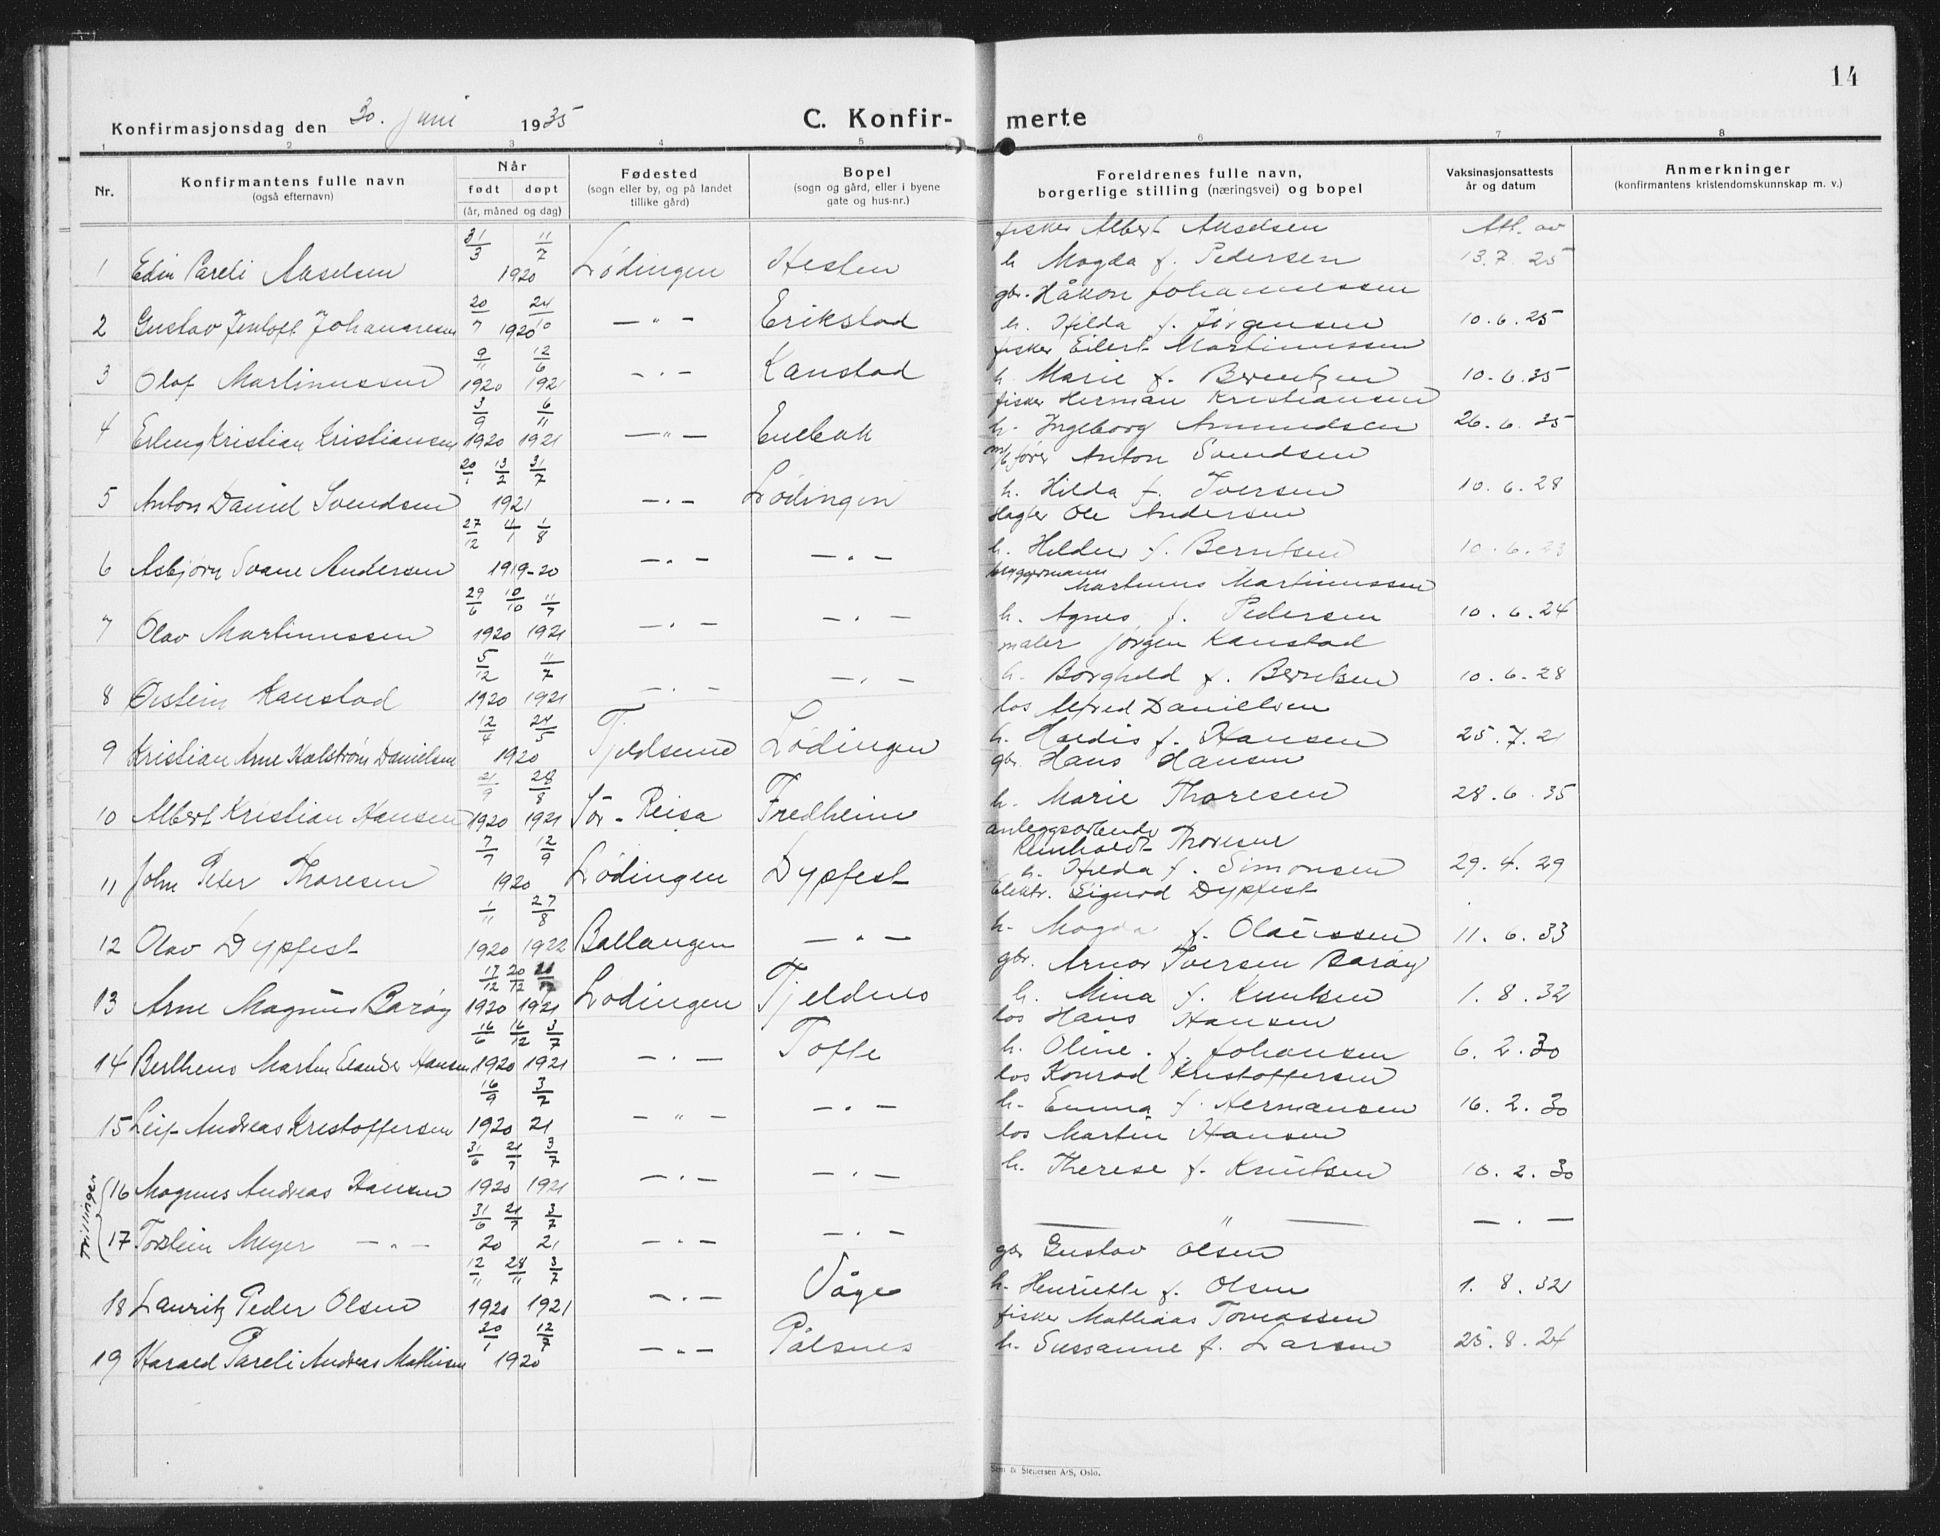 14
Konfirmasjonsdag den 30. juni 1935
C. Konfirmerte
1 2 3 4 5 6 7 8
Nr.
Konfirmantens fulle navn
(også efternavn)
Når
født døpt
(år, måned og dag)
Fødested
(sogn eller by, og på landet
tillike gård)
Bopel
(sogn og gård, eller i byene
gate og hus-nr.)
Foreldrenes fulle navn,
borgerlige stilling (næringsvei) og bopel
Vaksinasjonsattests
år og datum
Anmerkninger
(konfirmantens kristendomskunnskap m. v.)
31/3 11/7 fisker Albert Akselsen Att. av
1 Edin Pareli Akselsen 1920 Lødingen Hesten h. Magda f. Pedersen 13.7.25
20/7 24/10 gbr. Håkon Johannessen
2 Gustav Jentoft Johannesen 1920 — " — Erikstad h. Hilda f. Jørgensen 10.6.25
9/11 12/6 fisker Eilert Martinussen
3 Olaf Martinussen 1920 1921 — " — Kanstad h. Marie f. Berentzen 10.6.35
3/9 6/11 fisker Herman Kristiansen
4 Erling Kristian Kristiansen 1920 1921 — " — h. Ingeborg Amundsen 26.6.35
20/1 13/2 31/7 m/k fører Anton Svendsen
5 Anton Daniel Svendsen 1921 — " — Lødingen h. Hilda f. Iversen 10.6.28
27/12 4/1 1/8 Ole Andersen
6 Asbjørn Svane Andersen 1919-20 — " — — " — h. f. Berntsen 10.6.23
29/6 10/10 11/7 Martinus Martinussen
7 Olav Martinussen 1920 1921 — " — — " — h. Agnes f. Pedersen 10.6.24
5/12 11/7 maler Jørgen Kanstad
8 Øistein Kanstad 1920 1921 — " — — " — h. Borghild f. Berntsen 10.6.28
12/4 24/5 los Alfred Danielsen
9 Kristian Arne Danielsen 1920 Tjeldsund Lødingen h. Hardis f. Hansen 25.7.21
21/9 28/8 gbr. Hans Hansen
10 Albert Kristian Hansen 1920 1921 Sør-Reisa Fredheim h. Marie Thoresen 28.6.35
7/7 12/9 anleggsarbeider Reinholdt Thoresen
11 John Peter Thoresen 1920 Lødingen Dypfest h. Hilda f. Simonsen 29.4.29
1/11 27/8 Elektr. Sigurd Dypfest
12 Olav Dypfest 1920 1922 Ballangen — " — h. Magda f. Olaussen 11.6.33
17/12 20/12 gbr. Arnor Iversen Barøy
13 Arne Magnus Barøy 1920 1921 Lødingen Tjeldnes h. Mina f. Knutsen 1.8.32
16/6 16/12 3/7 los Hans Hansen
14 Berthens Martin Elander Hansen 1920 1921 — " — Toffe h. Oline f. Johansen 6.2.30
16/9 3/7 los Konrad Kristoffersen
15 Leif Andreas Kristoffersen 1920 21 — " — — " — h. Emma f. Hermansen 16.2.30
31/6 21/7 3/7 los Martin Hansen
Trillinger
16 Magnus Andreas Hansen 1920 1921 — " — — " — h. Therese f. Knutsen 10.2.30
31/6 21/7 3/7
17 Torstein Meyer — " — 20 21 — " — — " — — " — — " —
12/11 28/11 3/7 gbr Gustav Olsen
18 Lauritz Peder Olsen 1920 1921 — " — Våge h. Henriette f. Olsen 1.8.32
20/1 12/7 fisker Mathias Tomassen
19 Harald Pareli Andreas Mathisen 1920 — " — Pålsnes h. Sussanne f. Larsen 25.8.24
Sem & Stenersen A/S, Oslo.